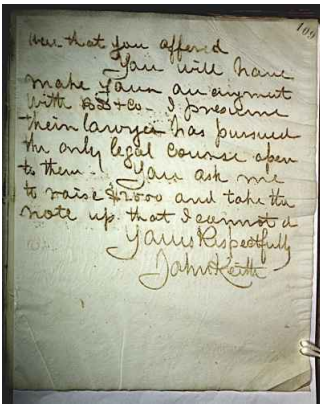 109
that you offered
You will have
make your arrangment
with B&S & Co - I presume
their lawyer has pursued
the only legal course open
to them - You ask me
to raise $2000 and take the
note up that I cannot d
Yours Respectfully
John Keith